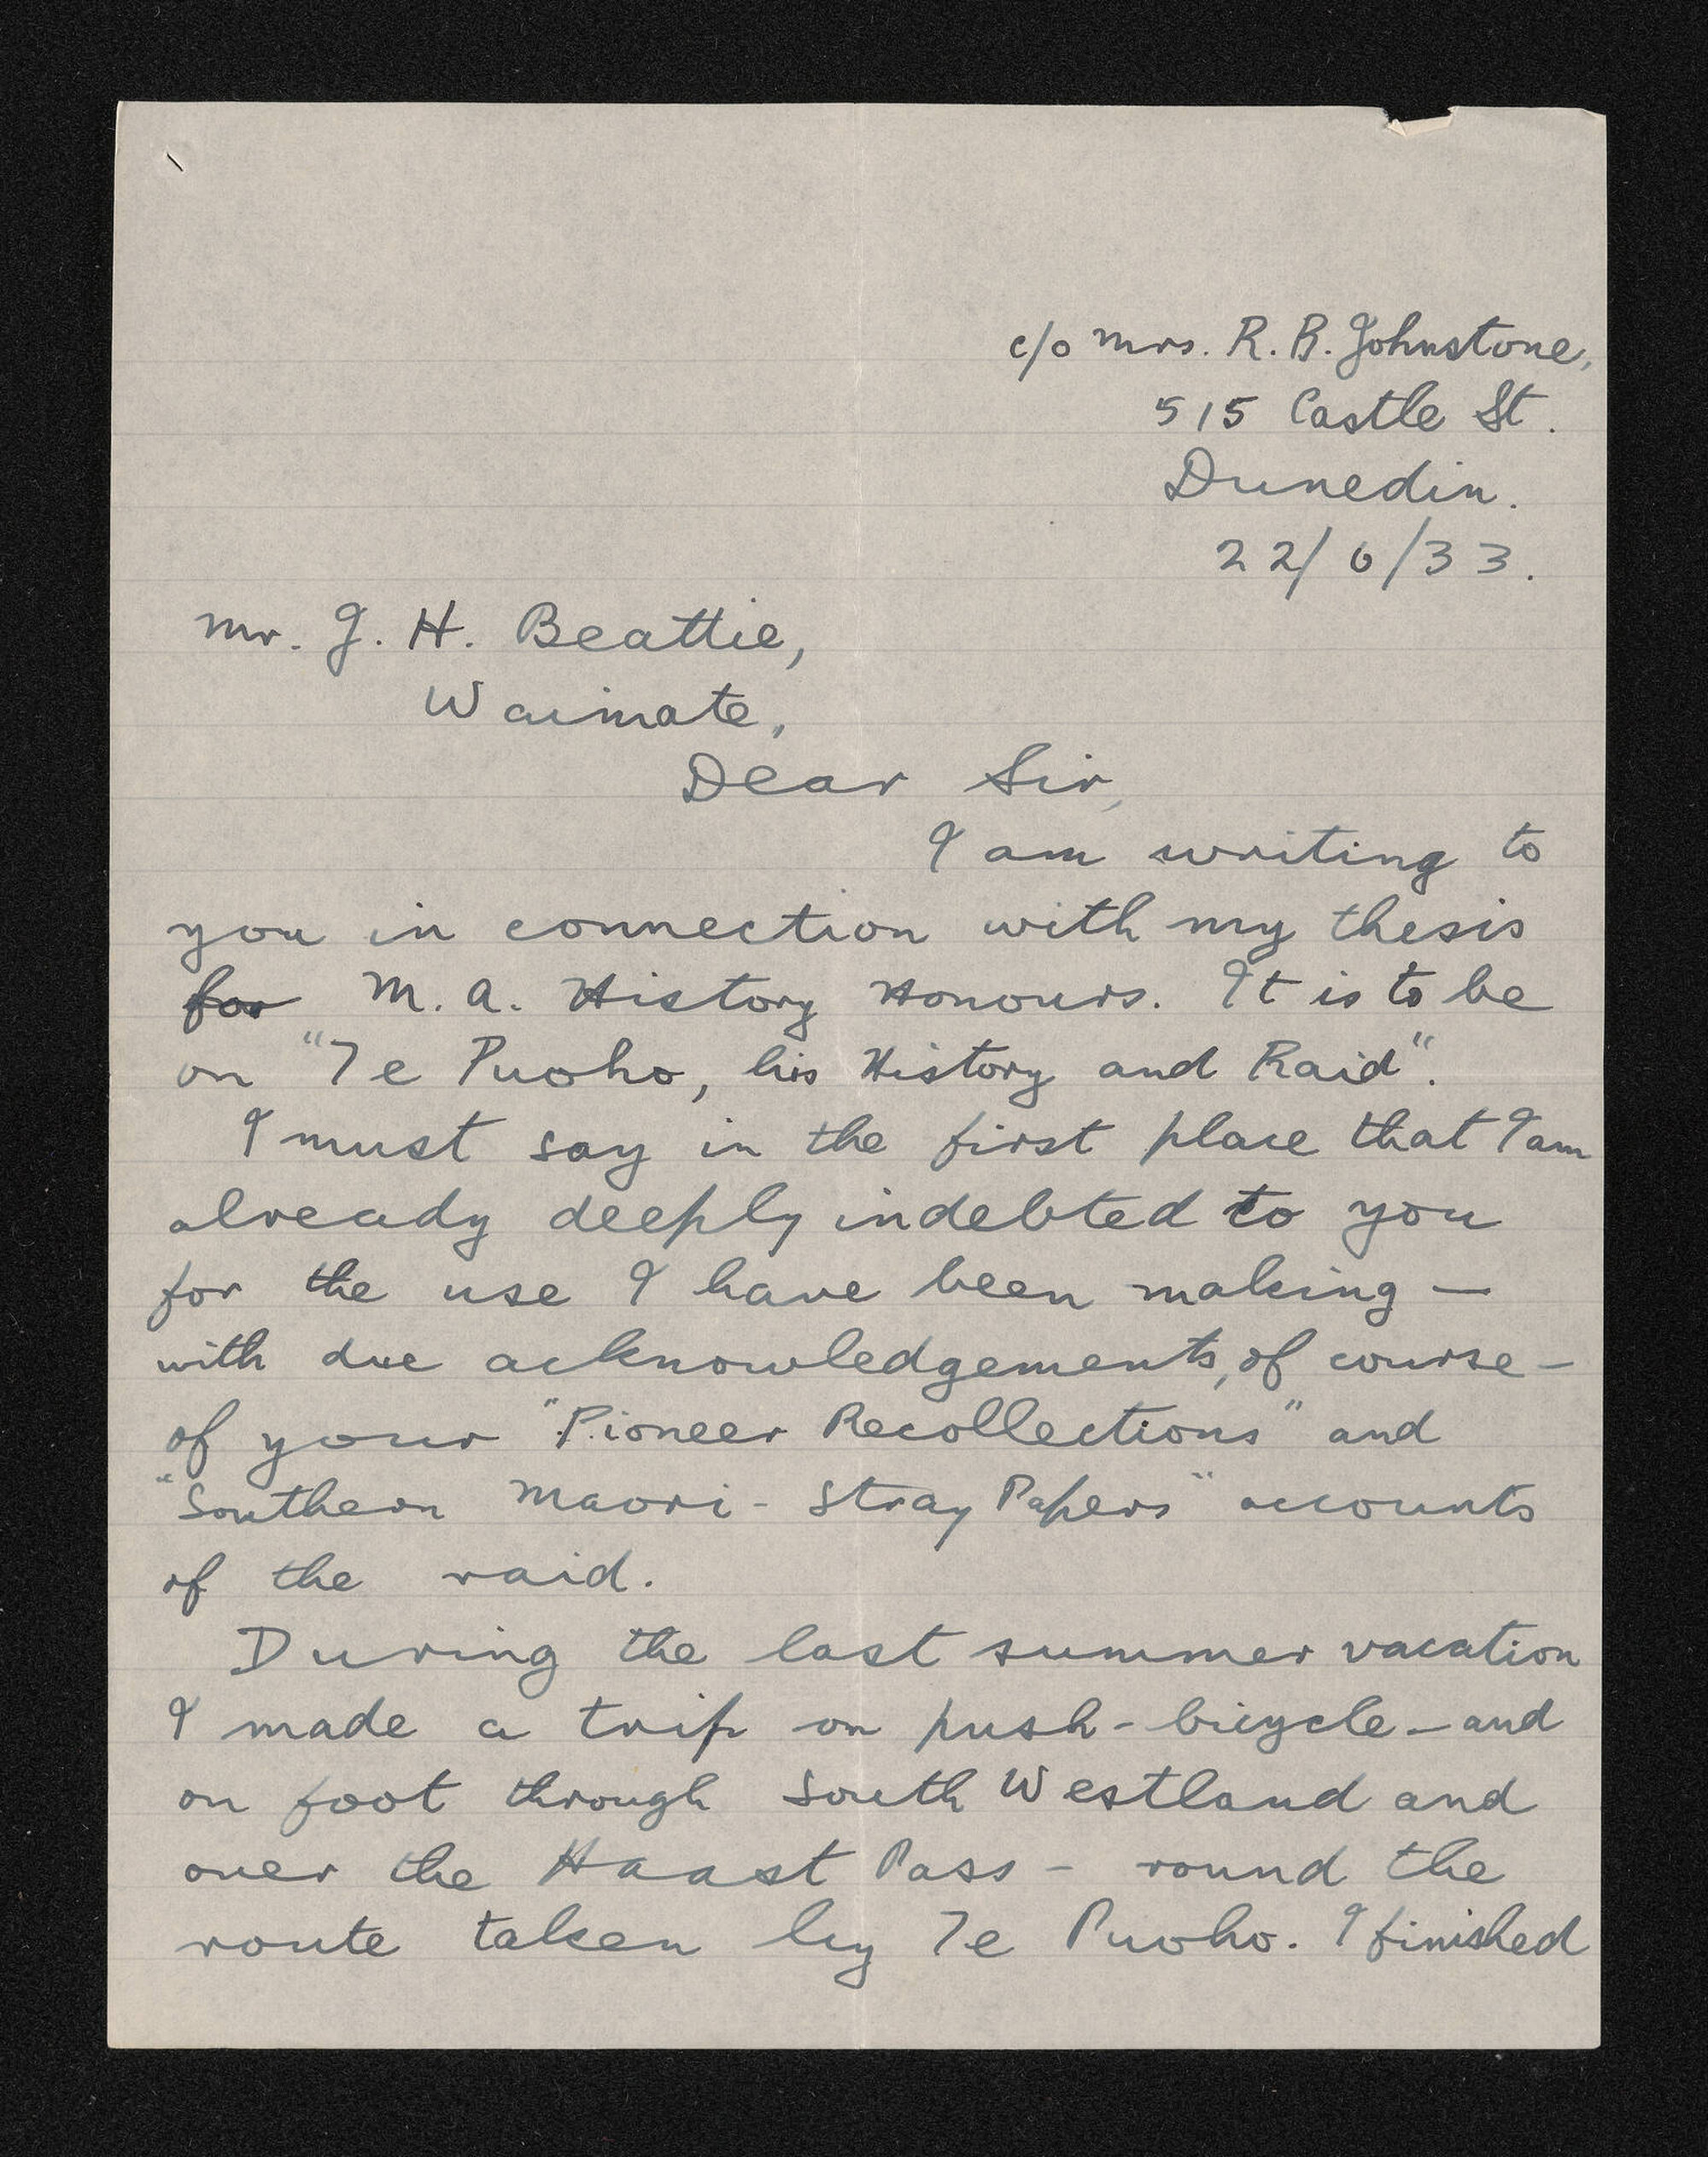 c/o Mrs. R. B. Johnstone,
515 Castle St.
Dunedin.
22/6/33.
Mr. J. H. Beattie,
Waimate,
Dear Sir,
I am writing to
you in connection with my thesis
for M. A. History Honours. It is to be
on "Te Puoho, his History and Raid".
I must say in the first place that I am
already deeply indebted to you
for the use I have been making —
with due acknowledgements, of course —
of your "Pioneer Recollections" and
"Southern Maori - Stray Papers" accounts
of the raid.
During the last summer vacation
I made a trip on push-bicycle — and
on foot through South Westland and
over the Haast Pass - round the
route taken by Te Puoho. I finished